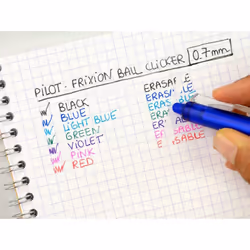 PILOT - FRIXION BALL CLICKER 0.7mm
BLACK
BLUE
LIGHT BLUE
GREEN
VIOLET
PINK
RED
ERASA LE
ERAS BLE
ERAS BLE
ERA
ER ABLE
E SABLE
E SABLE